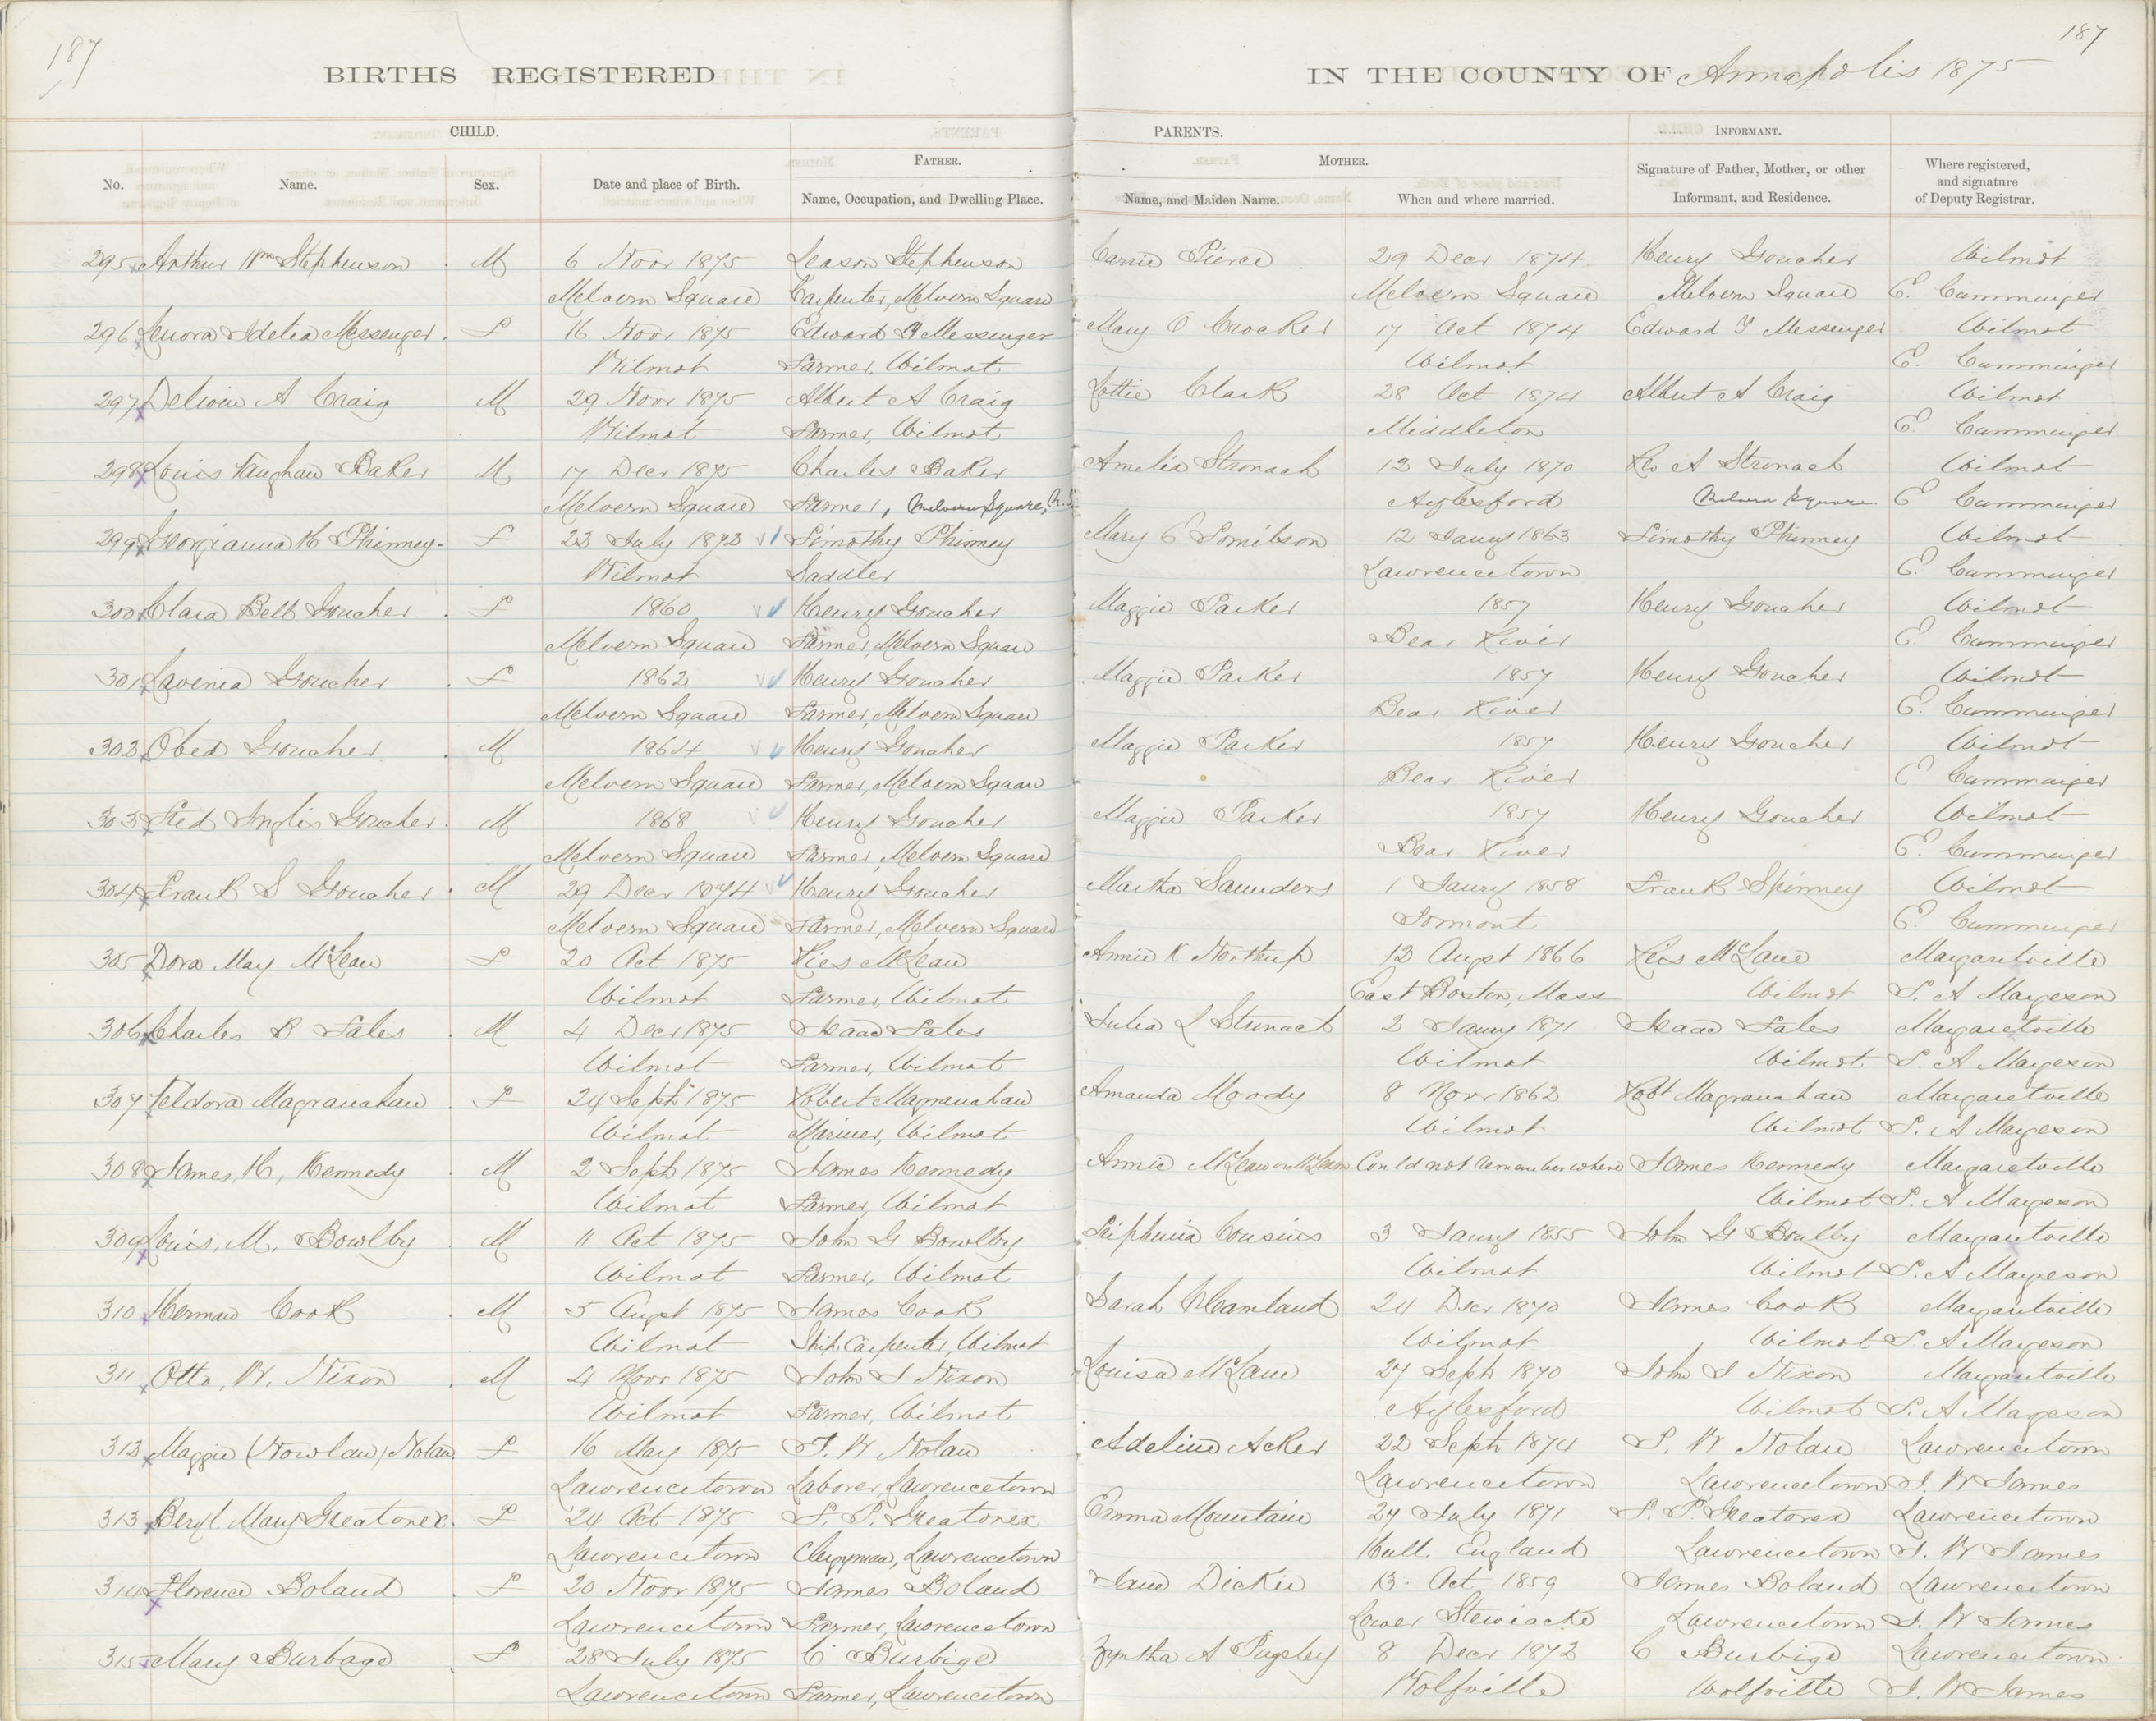 187
187
BIRTHS REGISTERED
IN THE COUNTY OF Annapolis 1875
CHILD.
PARENTS.
INFORMANT.
FATHER.
MOTHER.
No. Name. Sex. Date and place of Birth. Name, Occupation, and Dwelling Place. Name, and Maiden Name. When and where married. Signature of Father, Mother, or other Informant, and Residence. Where registered, and signature of Deputy Registrar.
295 Arthur Wm Stephenson M 6 Novr 1875 Leason Stephenson Carrie Pierce 29 Decr 1874 Henry Goucher Wilmot
Melvern Square Carpenter, Melvern Square Melvern Square Melvern Square E. Cumminger
296 Lenora Idelia Messenger F 16 Novr 1875 Edward Messenger Mary O Crocker 17 Oct 1874 Edward Messenger Wilmot
Wilmot Farmer, Wilmot Wilmot E. Cumminger
297 A Craig M 29 Novr 1875 Albert A Craig Lottie Clark 28 Oct 1874 Albert A Craig Wilmot
Wilmot Farmer, Wilmot Middleton E. Cumminger
298 Louis Vaughan Baker M 17 Decr 1875 Charles Baker Amelia Stronach 12 July 1870 A Stronach Wilmot
Melvern Square Farmer, Melvern Square, N.S. Aylesford Melvern Square E Cumminger
299 Georgianna H Phinney F 23 July 1873 Timothy Phinney Mary E 12 Jany 1863 Timothy Phinney Wilmot
Wilmot Saddler Lawrencetown E. Cumminger
300 Clara Bell Goucher F 1860 Henry Goucher Maggie Parker 1857 Henry Goucher Wilmot
Melvern Square Farmer, Melvern Square Bear River E. Cumminger
301 Lavenia Goucher F 1862 Henry Goucher Maggie Parker 1857 Henry Goucher Wilmot
Melvern Square Farmer, Melvern Square Bear River E. Cumminger
302 Obed Goucher M 1864 Henry Goucher Maggie Parker 1857 Henry Goucher Wilmot
Melvern Square Farmer, Melvern Square Bear River E Cumminger
303 Fred Inglis Goucher M 1868 Henry Goucher Maggie Parker 1857 Henry Goucher Wilmot
Melvern Square Farmer, Melvern Square Bear River E. Cumminger
304 Frank S Goucher M 29 Decr 1874 Henry Goucher Martha Saunders 1 Jany 1858 Frank Spinney Wilmot
Melvern Square Farmer, Melvern Square Tormont E. Cumminger
305 Dora May McLean F 20 Oct 1875 McLean Annie K Northup 13 Augst 1866 McLane Margaretville
Wilmot Farmer, Wilmot East Boston, Mass Wilmot S. A Margeson
306 Charles B Fales M 4 Decr 1875 Isaac Fales Julia L Stronach 2 Jany 1871 Isaac Fales Margaretville
Wilmot Farmer, Wilmot Wilmot Wilmot S. A Margeson
307 Veldora Magranahan F 24 Septr 1875 Robert Magranahan Amanda Moody 8 Novr 1862 Robt Magranahan Margaretville
Wilmot Mariner, Wilmot Wilmot Wilmot S. A Margeson
308 James, H, Kennedy M 2 Septr 1875 James Kennedy Annie Could not remember where James Kennedy Margaretville
Wilmot Farmer, Wilmot Wilmot S. A Margeson
309 Louis, M, Bowlby M 11 Oct 1875 John G Bowlby Cousins 3 Jany 1855 John G Bowlby Margaretville
Wilmot Farmer, Wilmot Wilmot Wilmot S. A Margeson
310 Herman Cook M 5 Augst 1875 James Cook Sarah 24 Decr 1870 James Cook Margaretville
Wilmot Ship Carpenter, Wilmot Wilmot Wilmot S. A Margeson
311 Otto, W. Nixon M 4 Novr 1875 John S Nixon Louisa McLane 27 Septr 1870 John S Nixon Margaretville
Wilmot Farmer, Wilmot Aylesford Wilmot S. A Margeson
312 Maggie (Nowlan) Nolan F 16 May 1875 W Nolan Adeline Acker 22 Septr 1874 W Nolan Lawrencetown
Lawrencetown Laborer, Lawrencetown Lawrencetown Lawrencetown J. W James
313 Beryl Mary Greatorex F 24 Oct 1875 Greatorex Emma Mountain 27 July 1871 Greatorex Lawrencetown
Lawrencetown Clergyman, Lawrencetown Hull. England Lawrencetown J. W James
314 Florence Boland F 20 Novr 1875 James Boland Jane Dickie 13 Oct 1859 James Boland Lawrencetown
Lawrencetown Farmer, Lawrencetown Lower Stewiacke Lawrencetown J. W James
315 Mary Burbage F 28 July 1875 C Burbige A Pugsley 8 Decr 1873 C Burbige Lawrencetown
Lawrencetown Farmer, Lawrencetown Wolfville Wolfville J. W James